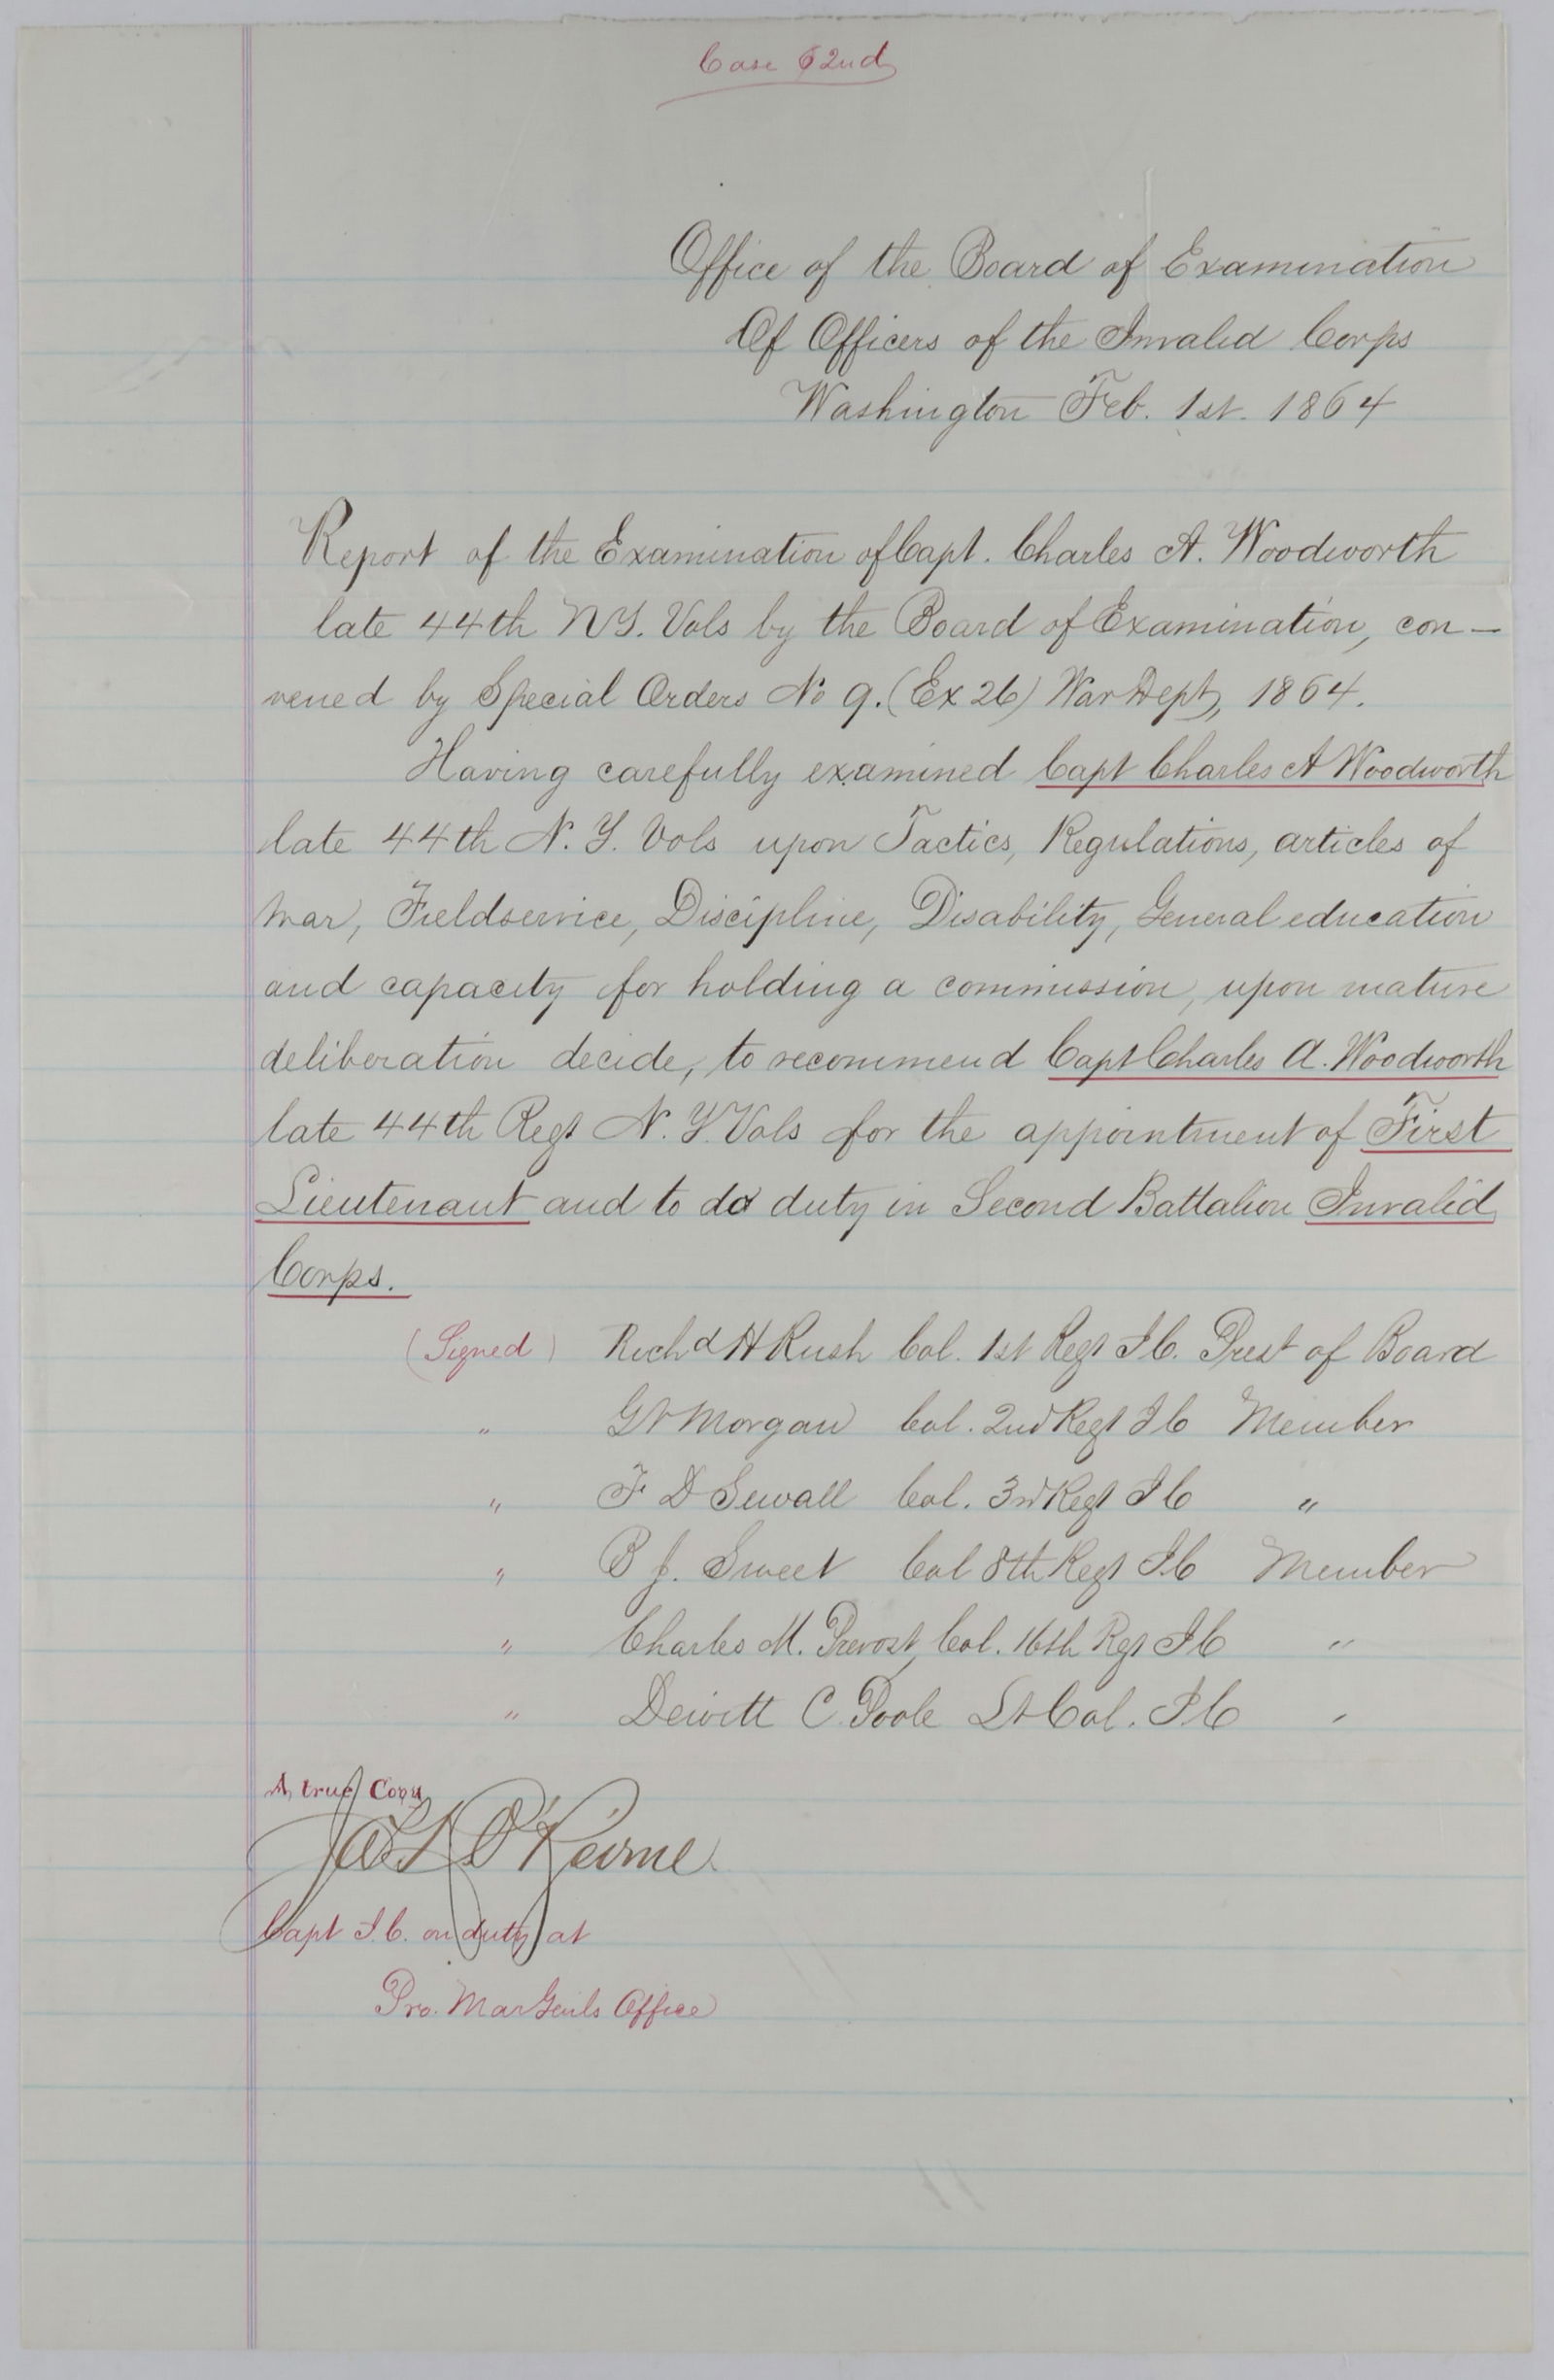 Case 62nd
Office of the Board of Examination
Of Officers of the Invalid Corps
Washington Feb. 1st. 1864
Report of the Examination of Capt. Charles A. Woodworth
late 44th N.Y. Vols by the Board of Examination, con-
vened by Special Orders No 9. (Ex 26) War Dept, 1864.
Having carefully examined Capt Charles A Woodworth
late 44th N. Y. Vols upon Tactics, Regulations, articles of
War, Fieldservice, Discipline, Disability, General education
and capacity for holding a commission, upon mature
deliberation decide, to recommend Capt Charles A. Woodworth
late 44th Regt N. Y. Vols for the appointment of First
Lieutenant and to do duty in Second Battalion Invalid
Corps.
(Signed) Richd H Rush Col. 1st Regt I.C. Prest of Board
" Morgan Col. 2nd Regt I C Member
" F D Sewall Col. 3rd Regt I C "
" B J. Sweet Col 8th Regt I.C Member
" Charles M. Prevost, Col. 16th Regt I C "
" Dewitt C. Poole Lt Col. I C "
A true Copy
Jas R O'Beirne
Capt I.C. on duty at
Pro. Mar Genls Office